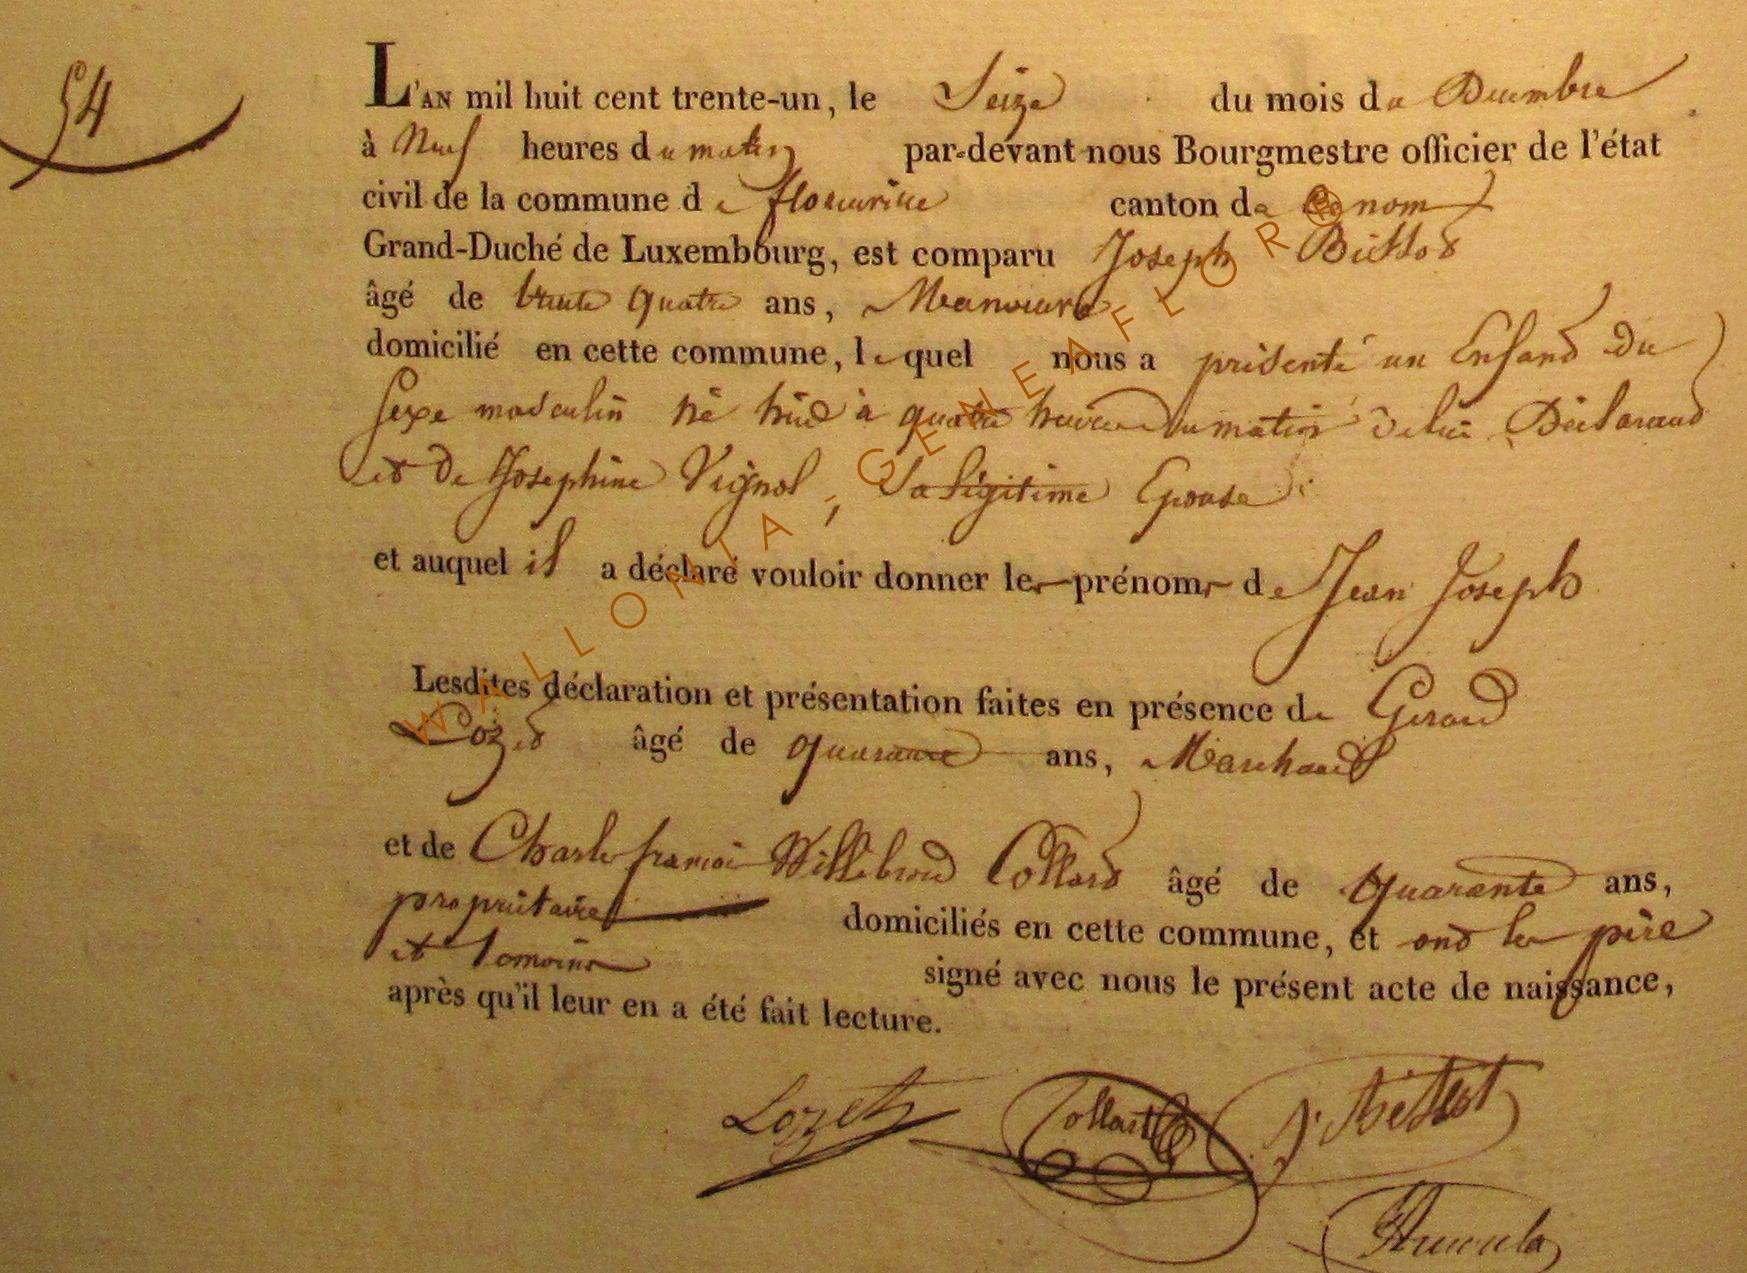 54
L'AN mil huit cent trente-un, le Seize du mois de Decembre
à Neuf heures du matin par-devant nous Bourgmestre officier de l'état
civil de la commune de florenville canton de
Grand-Duché de Luxembourg, est comparu Joseph
âgé de trente quatre ans, Manœuvre
domicilié en cette commune, lequel nous a présenté un Enfand du
Sexe masculin né hied à quatre heures du matin de lui Déclarand
et de Josephine Vignol, Sa légitime Epouse
et auquel il a déclaré vouloir donner les prénoms de Jean Joseph
Lesdites déclaration et présentation faites en présence de Gerard
Lozed âgé de quarante ans, Marchand
et de Charles françois Willebrord Collard âgé de quarante ans,
propriétaire domiciliés en cette commune, et ond les père
et temoins signé avec nous le présent acte de naissance,
après qu'il leur en a été fait lecture.
Lozet Collart
WALLONIA, GENEAFLORE